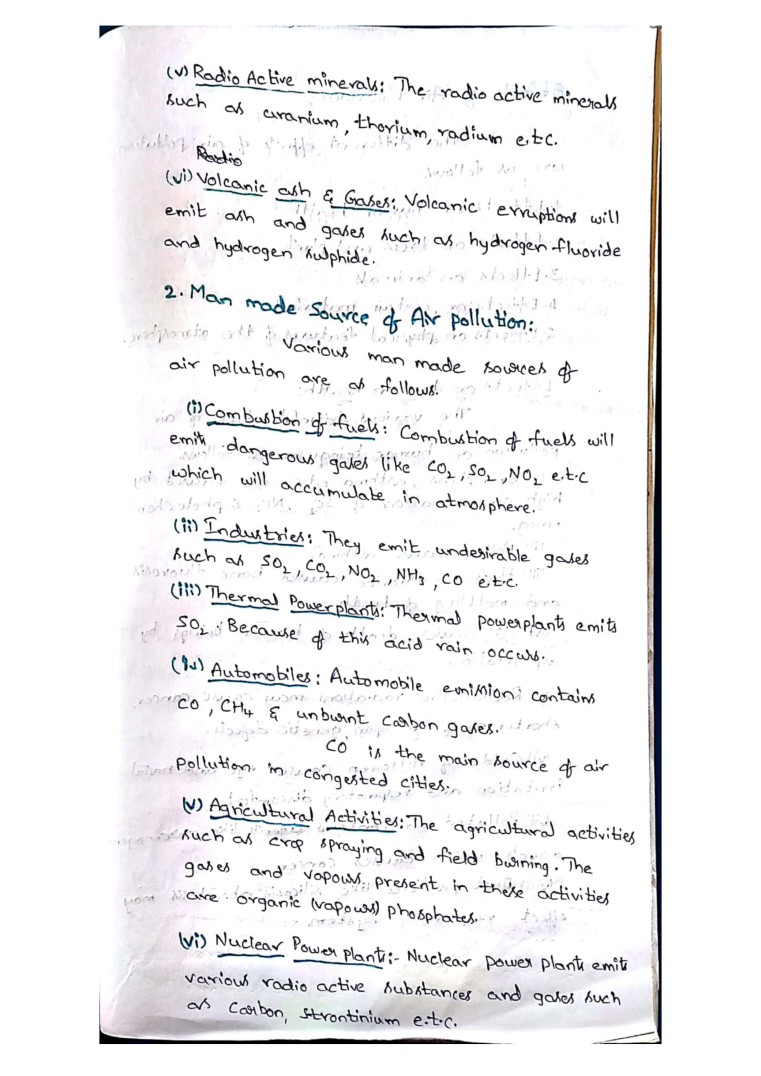 (v) Radio Active minerals: The radio active minerals
such as uranium, thorium, radium e.t.c.
Radio
(vi) Volcanic ash & Gases: Volcanic erruptions will
emit ash and gases such as hydrogen fluoride
and hydrogen sulphide.
2. Man made Source of Air pollution:
Various man made sources of
air pollution are as follows.
(i) Combustion of fuels: Combustion of fuels will
emits dangerous gases like CO2, SO2, NO2 e.t.c
which will accumulate in atmosphere.
(ii) Industries: They emit undesirable gases
such as SO2, CO2, NO2, NH3, CO e.t.c
(iii) Thermal Powerplants: Thermal powerplants emits
SO2. Because of this acid rain occurs.
(iv) Automobiles: Automobile emission contains
CO, CH4 & unburnt carbon gases.
CO is the main source of air
Pollution in congested cities.
(v) Agricultural Activities: The agricultural activities
such as crop spraying and field burning. The
gases and vapours present in these activities
are organic (vapours) phosphates.
(vi) Nuclear Power plant:- Nuclear power plants emits
various radio active substances and gases such
as Carbon, Strontinium e.t.c.